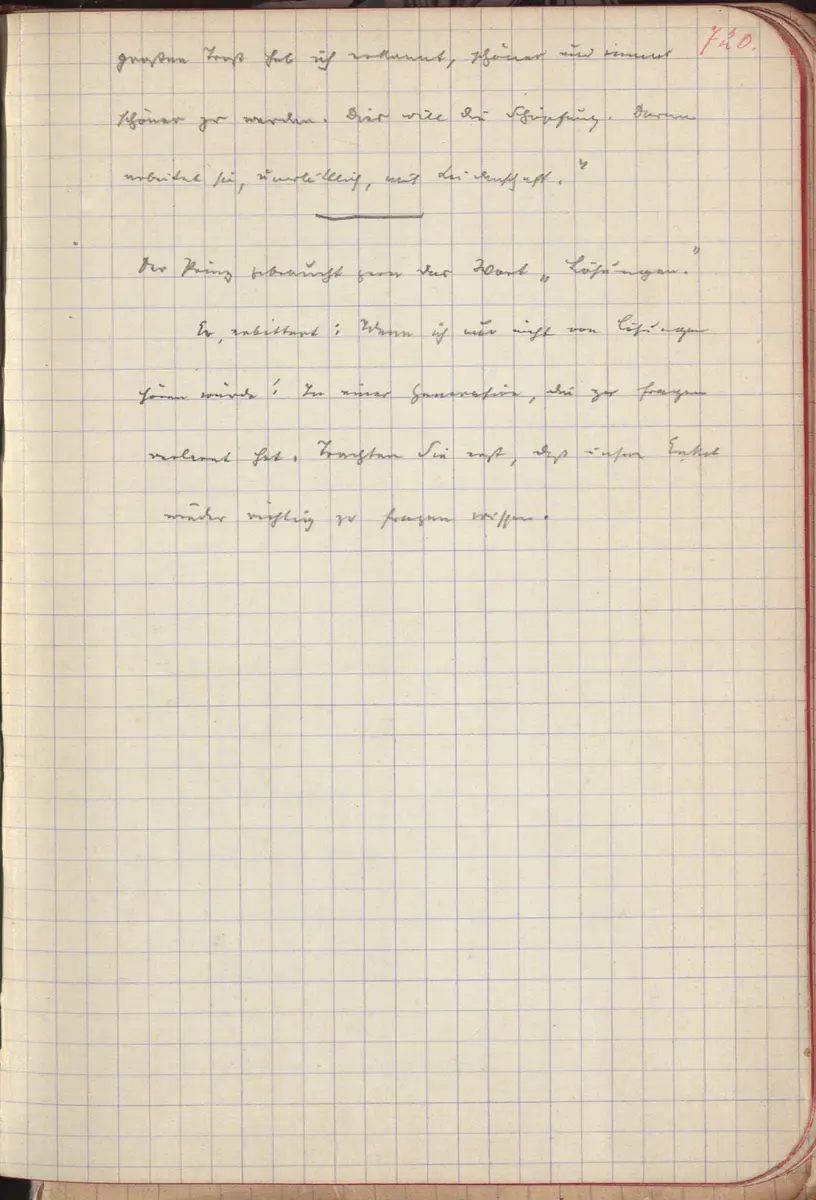 720.
großen Trost hab ich erkannt, schöner und immer
schöner zu werden. Dies will die Schöpfung. Daran
arbeitet sie, unerbittlich, mit Leidenschaft."
Der Prinz gebraucht gern das Wort „Lösungen."
Er, erbittert: Wenn ich nur nicht von Lösungen
hören würde! In einer Generation, die zu fragen
verlernt hat. Trachten Sie erst, daß unsere Enkel
wieder richtig zu fragen wissen.